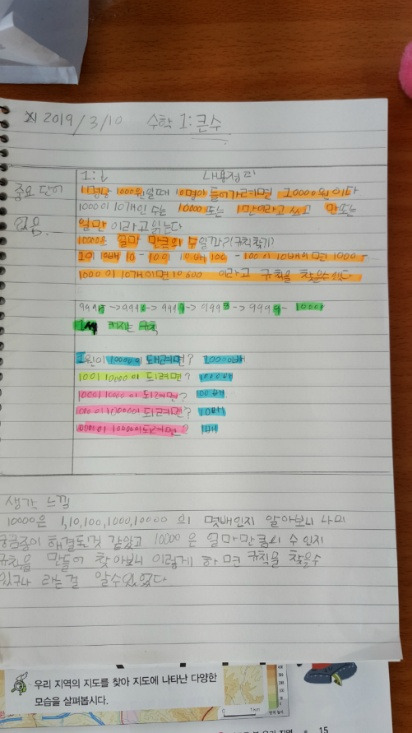 2019/3/10 수학 1:큰수
내용정리
중요 단어
없음
1명당 1000원일때 10명이 들어가려면 10000원이다
1000이 10개인 수는 10000 또는 1만이라고 쓰고 만 또는
일만 이라고 읽는다
10000은 얼마 만큼의 수일까?(규칙찾기)
1000이 10개이면 10000 이라고 규칙을 찾을수 있다
커지는 규칙
1원이 10000이 되려면? 10000배
10이 10000이 되려면? 1000배
100이 10000이 되려면? 100배
1000이 10000이 되려면? 10배
생각, 느낌
10000은 1,10,100,1000,10000 의 몇배인지 알아보니 나의
궁금증이 해결된것 같았고 10000 은 얼마만큼의 수 인지
규칙을 만들어 찾아보니 이렇게 하면 규칙을 찾을수
있구나 라는걸 알수있었다
우리 지역의 지도를 찾아 지도에 나타난 다양한
모습을 살펴봅시다.
15